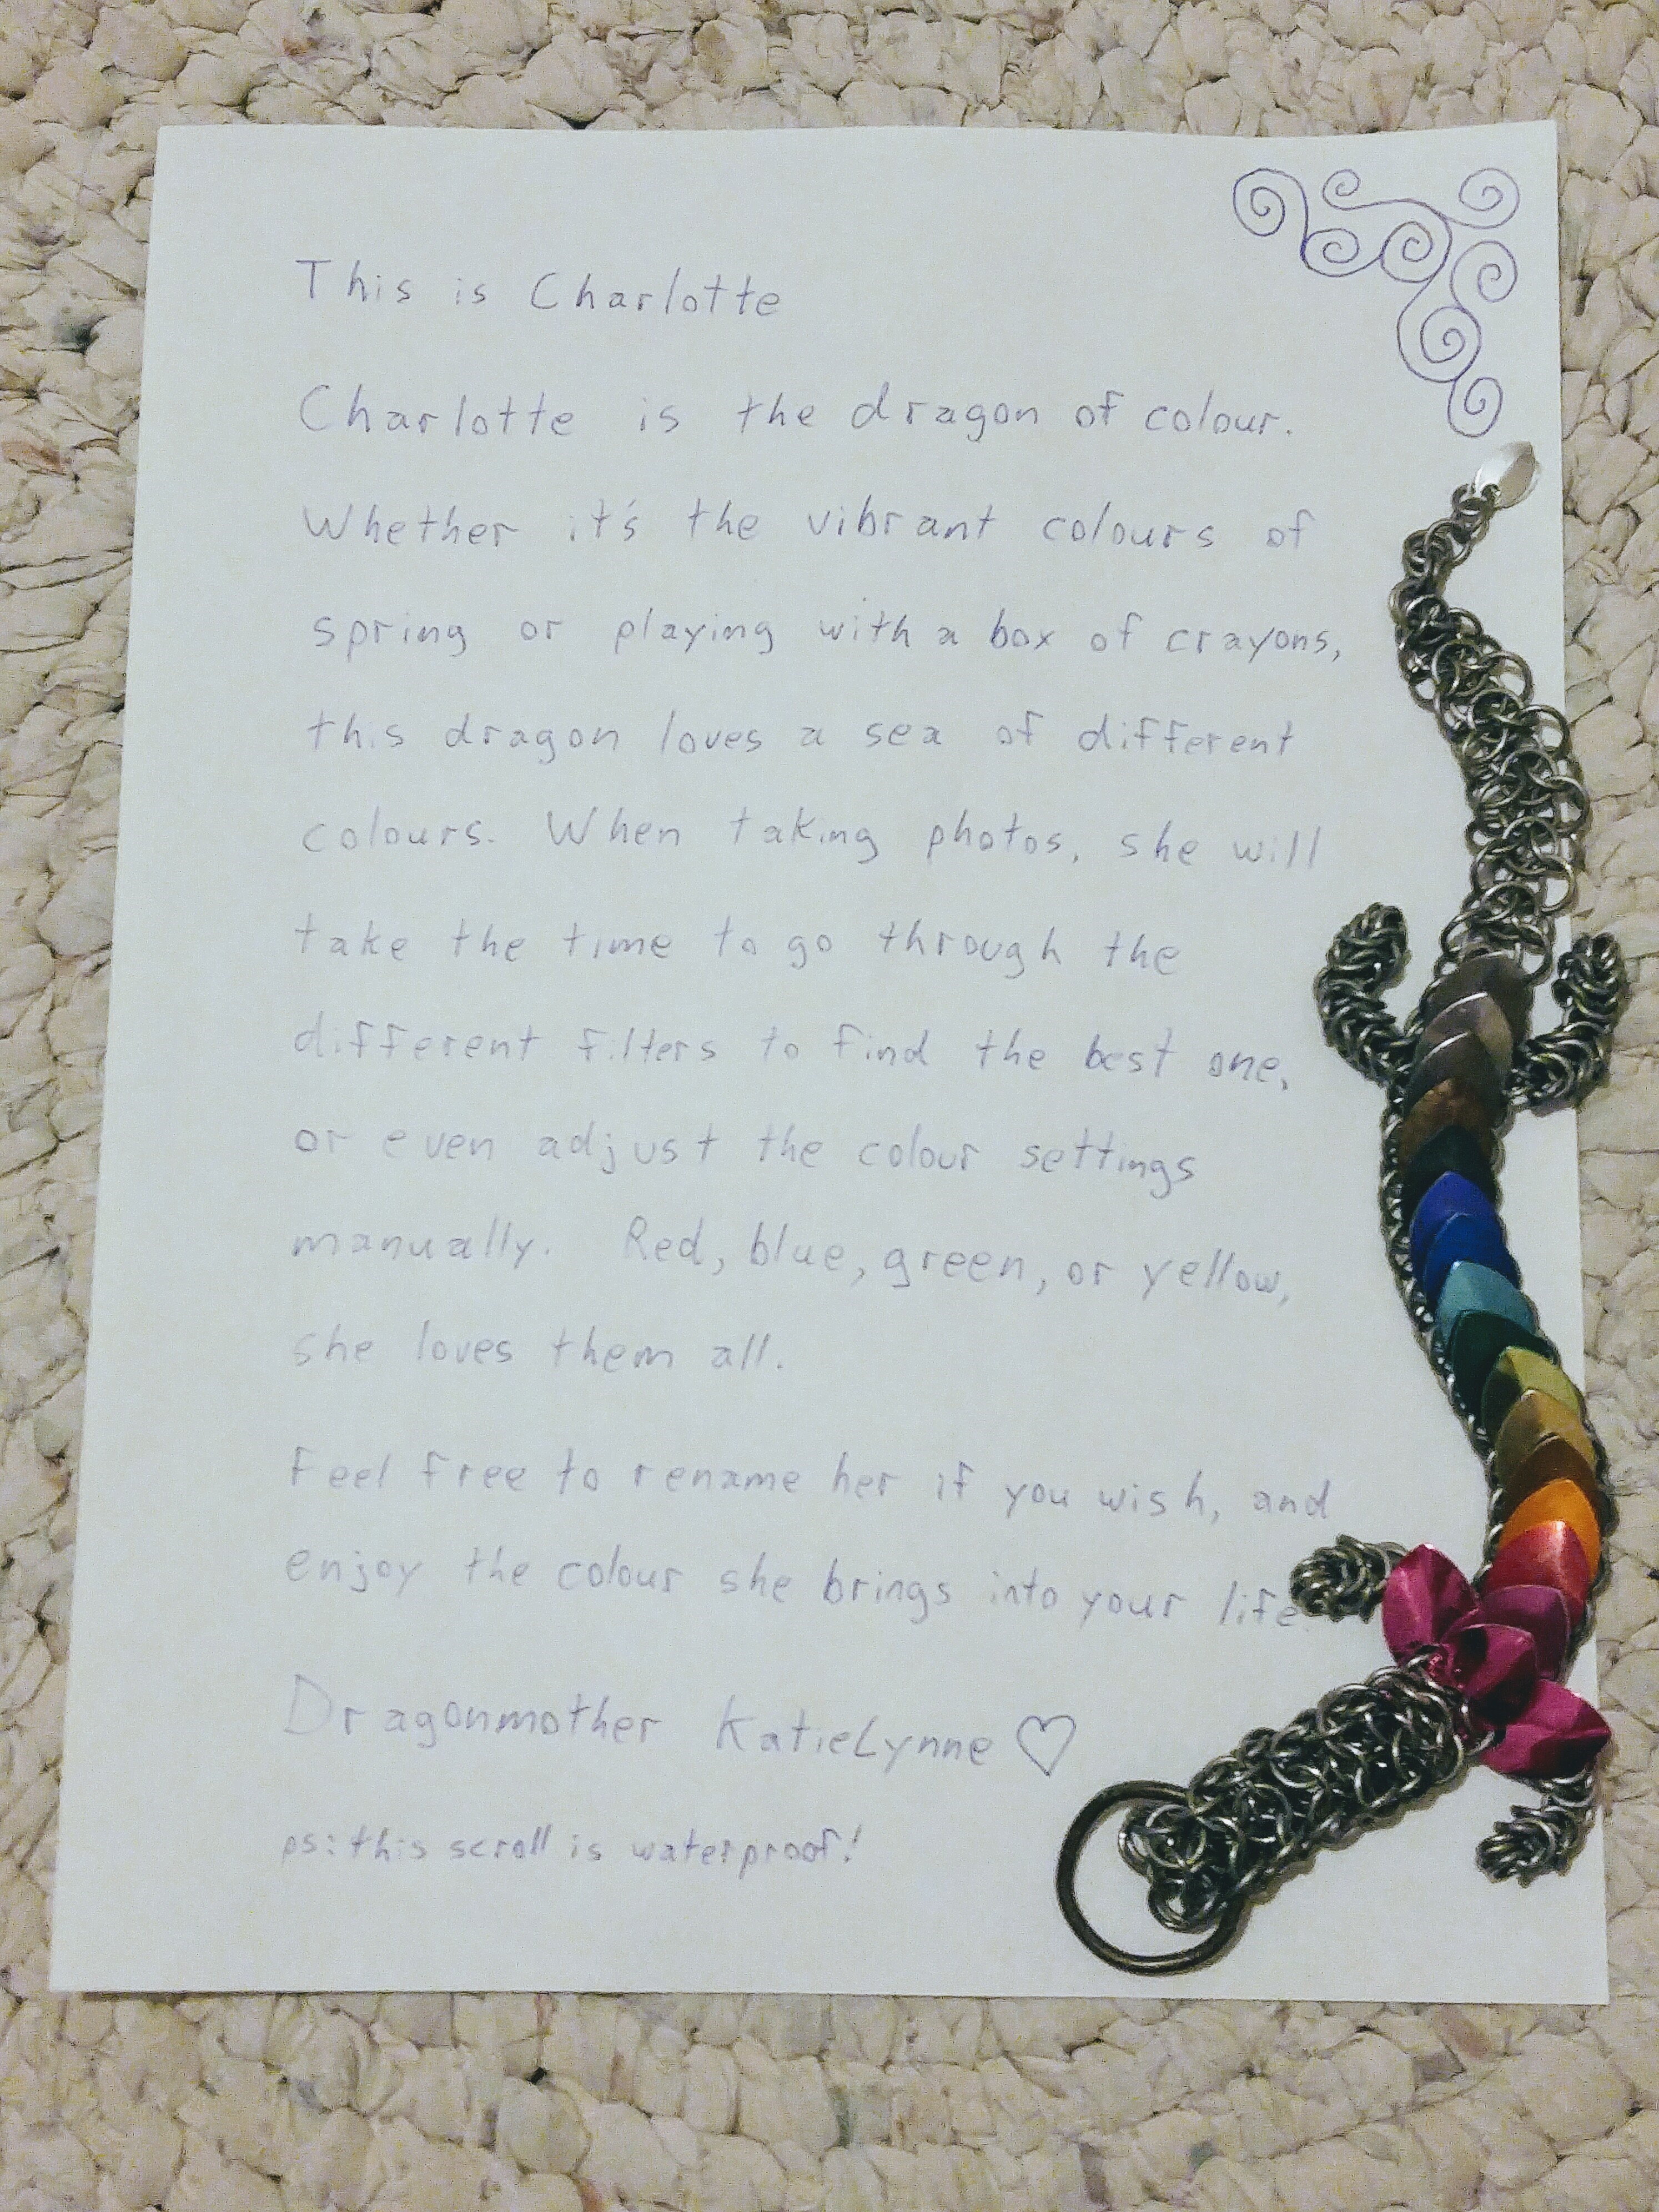 This is Charlotte
Charlotte is the dragon of colour.
Whether it's the vibrant colours of
spring or playing with a box of crayons,
this dragon loves a sea of different
colours. When taking photos, she will
take the time to go through the
different filters to find the best one,
or even adjust the colour settings
manually. Red, blue, green, or yellow,
she loves them all.
Feel free to rename her if you wish, and
enjoy the colour she brings into your life.
Dragonmother KatieLynne ♡
ps: this scroll is waterproof!